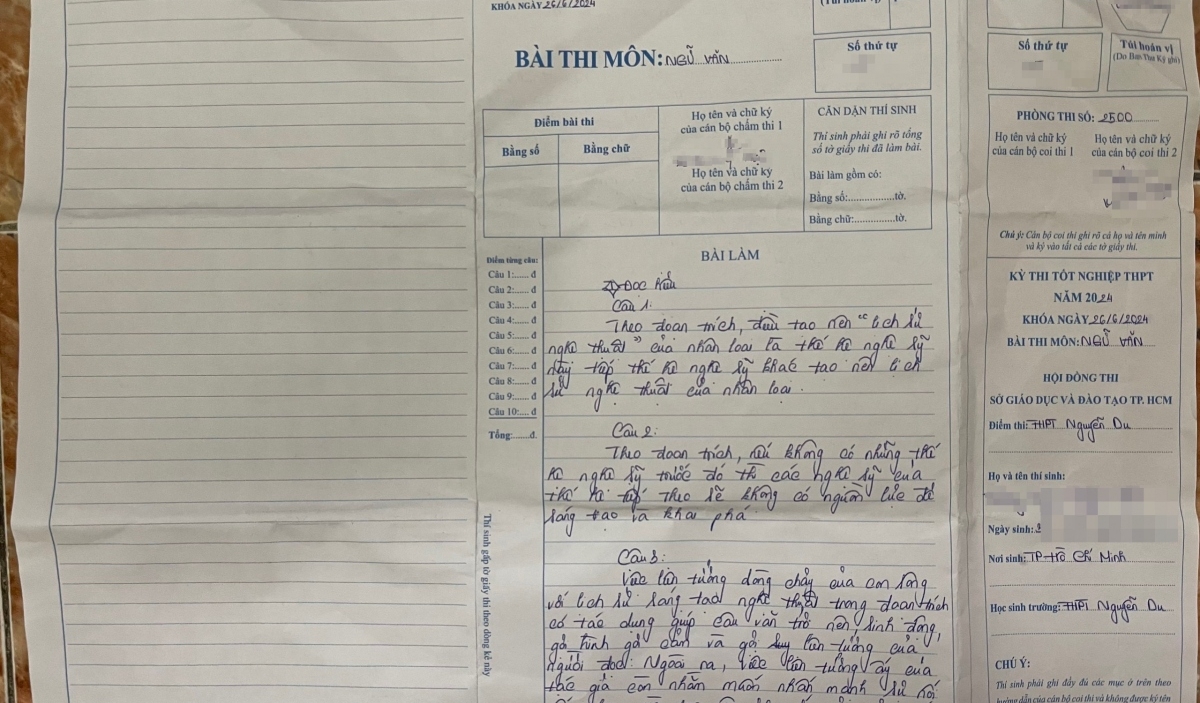 KHÓA NGÀY 26/6/2024
BÀI THI MÔN: NGỮ VĂN
Số thứ tự
Điểm bài thi
Bằng số
Bằng chữ
Họ tên và chữ ký
của cán bộ chấm thi 1
Họ tên và chữ ký
của cán bộ chấm thi 2
CĂN DẶN THÍ SINH
Thí sinh phải ghi rõ tổng
số tờ giấy thi đã làm bài.
Bài làm gồm có:
Bằng số:..................tờ.
Bằng chữ:...............tờ.
Điểm từng câu:
Câu 1:...... đ
Câu 2:...... đ
Câu 3:...... đ
Câu 4:...... đ
Câu 5:...... đ
Câu 6:...... đ
Câu 7:...... đ
Câu 8:...... đ
Câu 9:...... đ
Câu 10:.... đ
Tổng:.......đ.
Thí sinh gấp tờ giấy thi theo dòng kẻ này
BÀI LÀM
I Đọc hiểu
Câu 1:
Theo đoạn trích, điều tạo nên "lịch sử
nghệ thuật" của nhân loại là thế hệ nghệ sỹ
này tiếp thế hệ nghệ sỹ khác tạo nên lịch
sử nghệ thuật của nhân loại.
Câu 2:
Theo đoạn trích, nếu không có những thế
hệ nghệ sỹ trước đó thì các nghệ sỹ của
thế hệ tiếp theo sẽ không có nguồn lực để
sáng tạo và khai phá
Câu 3:
Việc liên tưởng dòng chảy của con sông
với lịch sử sáng tạo nghệ thuật trong đoạn trích
có tác dụng giúp câu văn trở nên sinh động,
gợi hình gợi cảm và gợi suy liên tưởng của
người đọc. Ngoài ra, việc liên tưởng ấy của
tác giả còn nhằm muốn nhấn mạnh sự nối
Số thứ tự
Túi hoán vị
(Do Ban Thư Ký ghi)
PHÒNG THI SỐ: 2500
Họ tên và chữ ký
của cán bộ coi thi 1
Họ tên và chữ ký
của cán bộ coi thi 2
Chú ý: Cán bộ coi thi ghi rõ cả họ và tên mình
và ký vào tất cả các tờ giấy thi.
KỲ THI TỐT NGHIỆP THPT
NĂM 2024
KHÓA NGÀY 26/6/2024
BÀI THI MÔN: NGỮ VĂN
HỘI ĐỒNG THI
SỞ GIÁO DỤC VÀ ĐÀO TẠO TP. HCM
Điểm thi: THPT Nguyễn Du
Họ và tên thí sinh:
Ngày sinh:
Nơi sinh: TP-Hồ Chí Minh
Học sinh trường: THPT Nguyễn Du
CHÚ Ý:
Thí sinh phải ghi đầy đủ các mục ở trên theo
hướng dẫn của cán bộ coi thi và không được ký tên